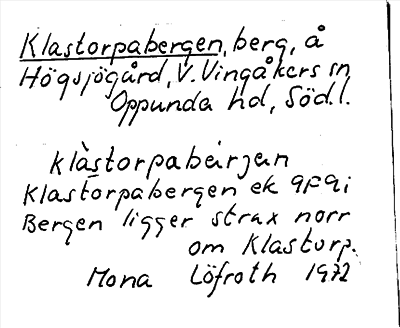 Klastorpabergen, berg, å
Högsjögård, V. Vingåkers sn
Oppunda hd, Södl.
klàstorpabärjan
Klastorpabergen ek 9F9i
Bergen ligger strax norr
om Klastorp.
Mona Löfroth 1972